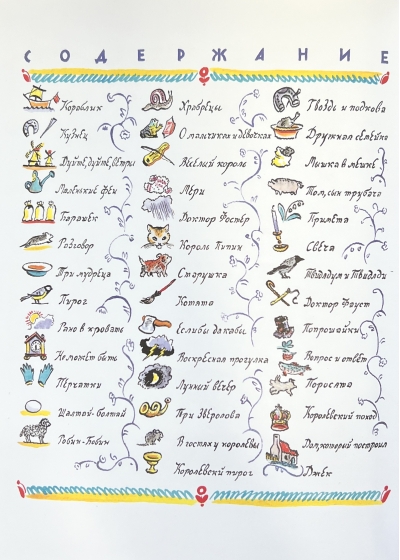 СОДЕРЖАНИЕ
Кораблик
Кузнец
Дуйте, дуйте, ветры
Маленькие феи
Барашек
Разговор
Три мудреца
Пирог
Рано в кровать
Не может быть
Перчатки
Шалтай-Болтай
Робин-Бобин
Храбрецы
О мальчиках и девочках
Весёлый король
Мэри
Доктор Фостер
Король Пипин
Старушка
Котята
Если бы да кабы
Воскресная прогулка
Лунный вечер
Три Зверолова
В гостях у королевы
Королевский пирог
Гвоздь и подкова
Дружная семейка
Мышка в мешке
Том, сын трубача
Примета
Свеча
Твидлдум и Твидлди
Доктор Фауст
Попрошайки
Вопрос и ответ
Поросята
Королевский поход
Дом, который построил
Джек